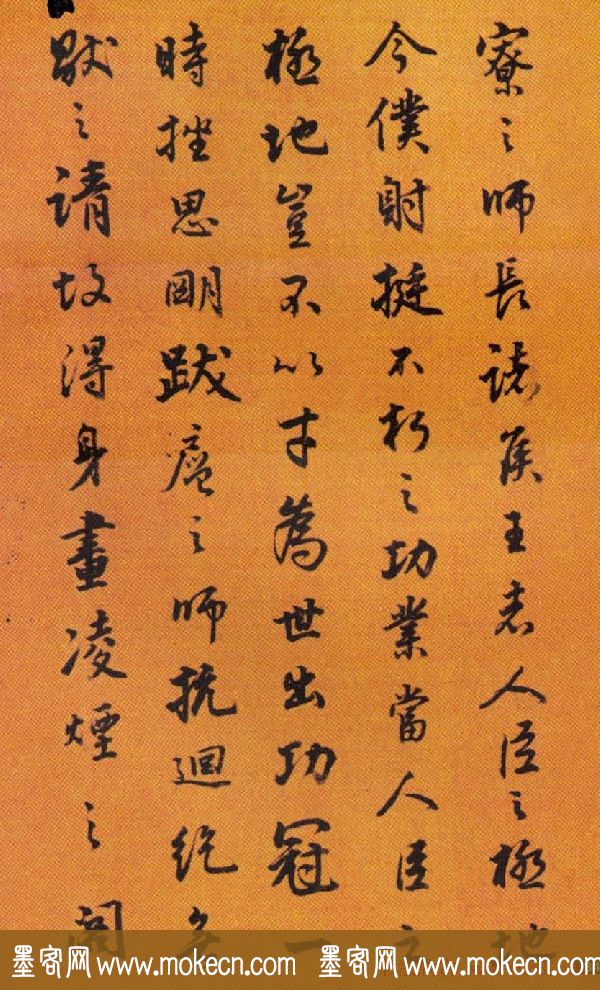 寮之師長諸侯王者人臣之極地
今僕射挺不朽之功業當人臣之
極地豈不以才為世出功冠一
時挫思明跋扈之師抗迴紇無
猒之請故得身畫凌煙之閣
墨客网 www.mokecn.com 墨客网 www.mokecn.com